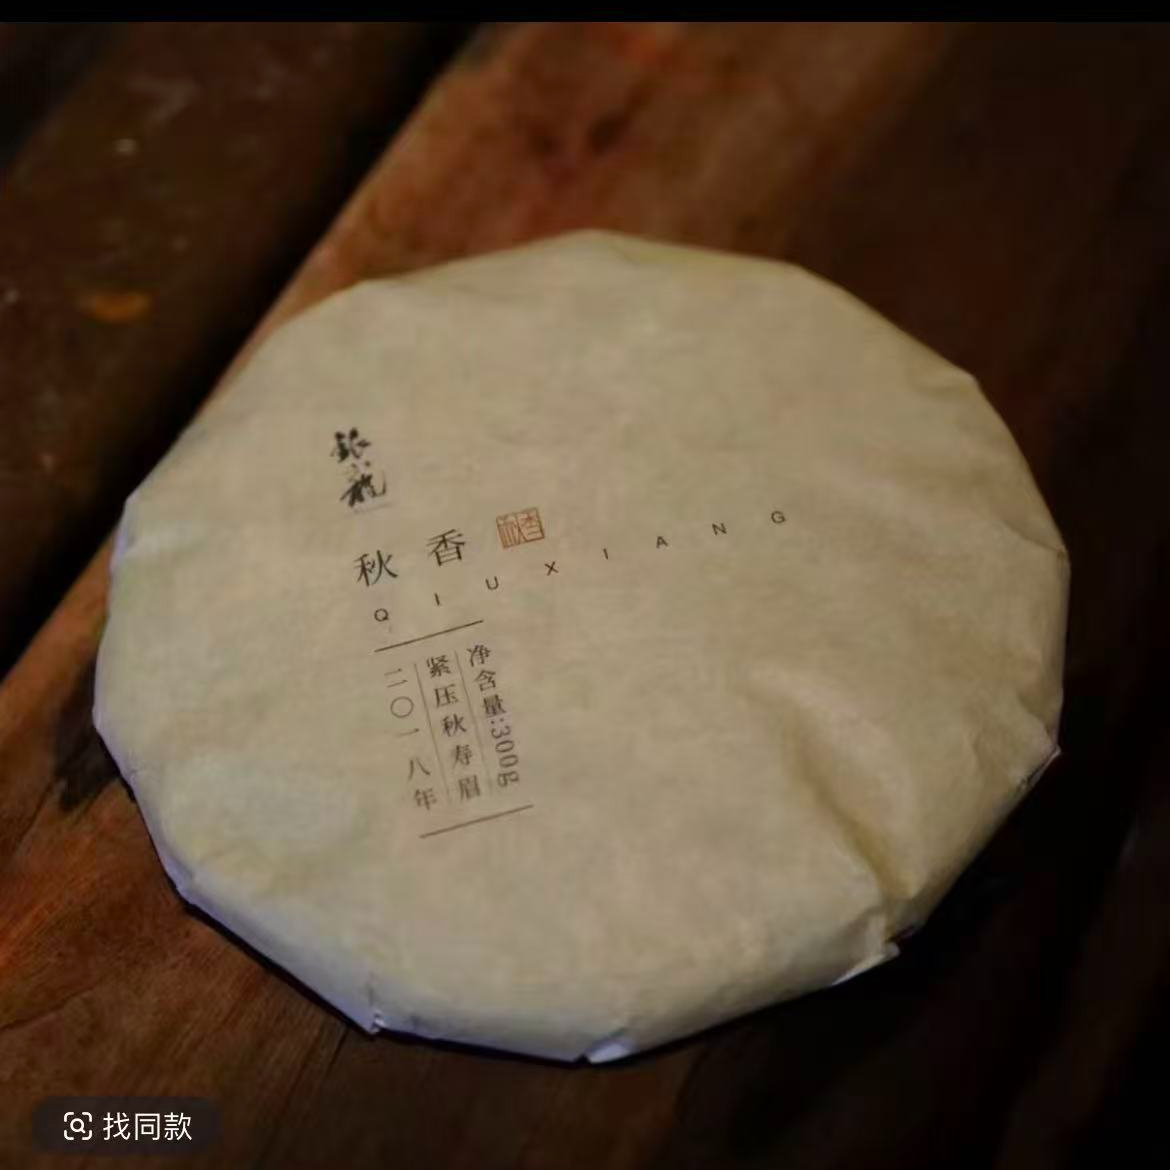 秋香
秋香
QIUXIANG
净含量:300g
紧压秋寿眉
二〇一八年
找同款